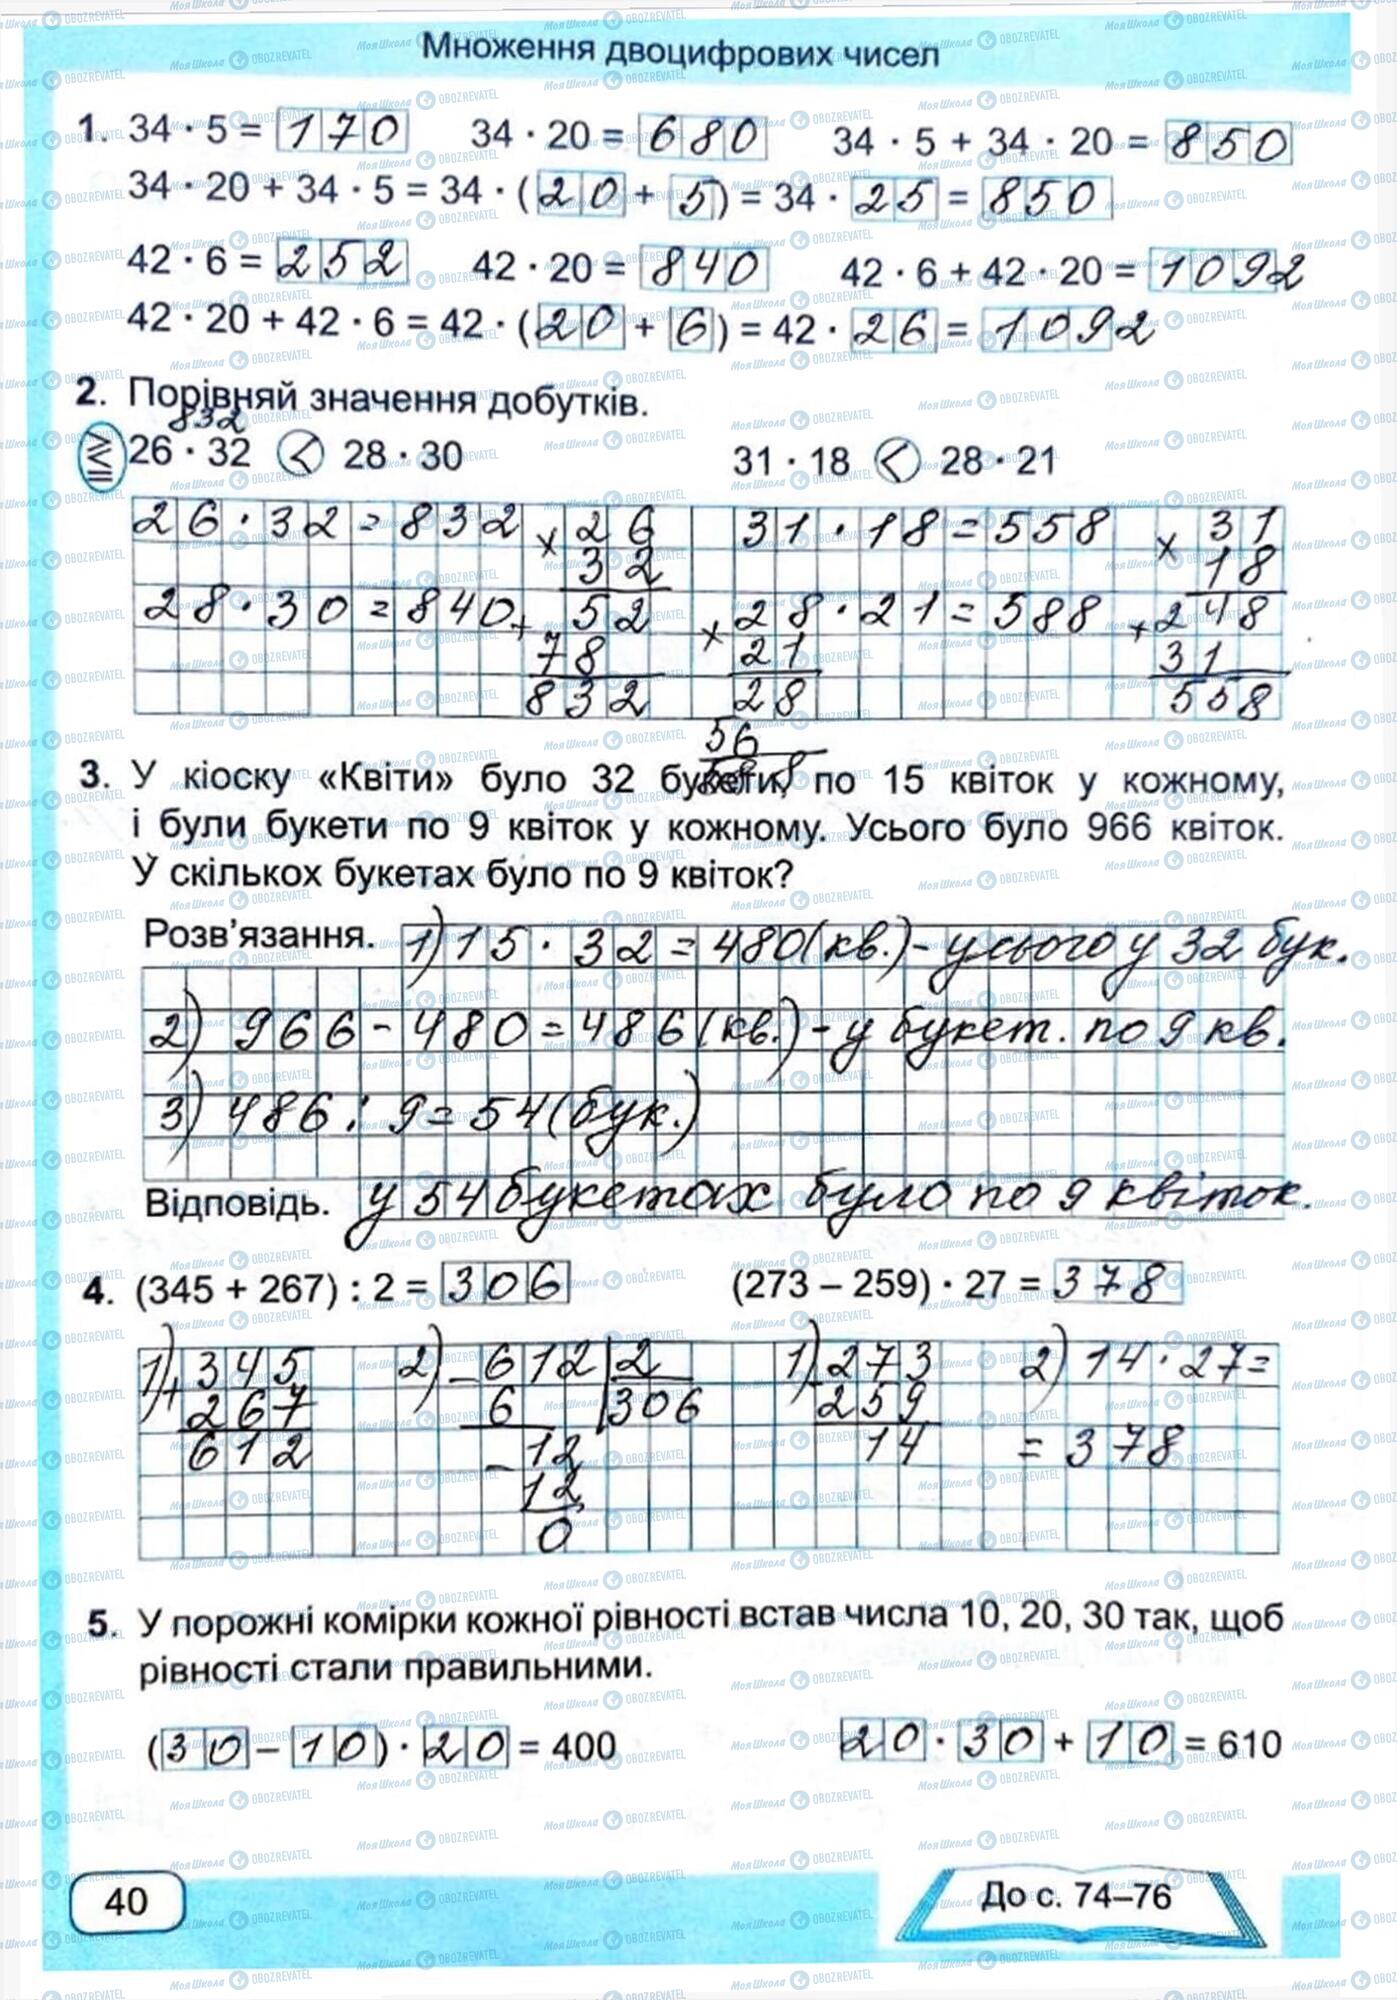 Множення двоцифрових чисел
1. 34 · 5 = 170 34 · 20 = 680 34 · 5 + 34 · 20 = 850
34 · 20 + 34 · 5 = 34 · (20 + 5) = 34 · 25 = 850
42 · 6 = 252 42 · 20 = 840 42 · 6 + 42 · 20 = 1092
42 · 20 + 42 · 6 = 42 · (20 + 6) = 42 · 26 = 1092
2. Порівняй значення добутків.
832
26 · 32 < 28 · 30 31 · 18 < 28 · 21
26 · 32 = 832 × 26 31 · 18 = 558 × 31
32 18
28 · 30 = 840 + 52 × 28 · 21 = 588 + 248
78 21 31
832 28 558
56
588
3. У кіоску «Квіти» було 32 букети, по 15 квіток у кожному,
і були букети по 9 квіток у кожному. Усього було 966 квіток.
У скількох букетах було по 9 квіток?
Розв’язання. 1) 15 · 32 = 480 (кв.) - усього у 32 бук.
2) 966 - 480 = 486 (кв.) - у букет. по 9 кв.
3) 486 : 9 = 54 (бук.)
Відповідь. у 54 букетах було по 9 квіток.
4. (345 + 267) : 2 = 306 (273 – 259) · 27 = 378
1) + 345 2) - 612 2 1) - 273 2) 14 · 27 =
267 6 306 259
612 - 12 14 = 378
12
0
5. У порожні комірки кожної рівності встав числа 10, 20, 30 так, щоб
рівності стали правильними.
(30 – 10) · 20 = 400 20 · 30 + 10 = 610
40 До с. 74–76
Моя Школа OBOZREVATEL